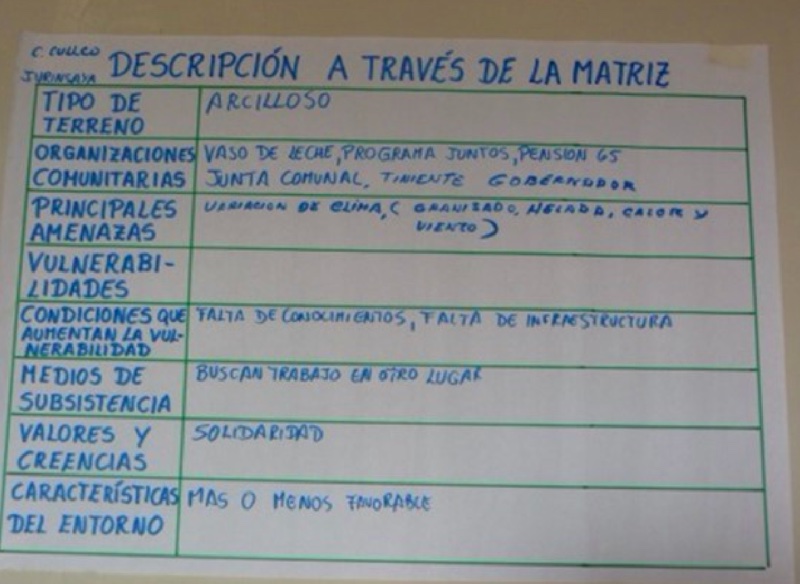 C. CULLCO
DESCRIPCIÓN A TRAVÉS DE LA MATRIZ
TIPO DE
TERRENO
ARCILLOSO
ORGANIZACIONES
COMUNITARIAS
VASO DE LECHE, PROGRAMA JUNTOS, PENSION 65
JUNTA COMUNAL, TINIENTE GOBERNADOR
PRINCIPALES
AMENAZAS
VARIACION DE CLIMA, ( GRANIZADO, HELADA, CALOR Y
VIENTO)
VULNERABI-
LIDADES
CONDICIONES QUE
AUMENTAN LA VUL-
NERABILIDAD
FALTA DE CONOCIMIENTOS, FALTA DE INFRAESTRUCTURA
MEDIOS DE
SUBSISTENCIA
BUSCAN TRABAJO EN OTRO LUGAR
VALORES Y
CREENCIAS
SOLIDARIDAD
CARACTERÍSTICAS
DEL ENTORNO
MAS O MENOS FAVORABLE